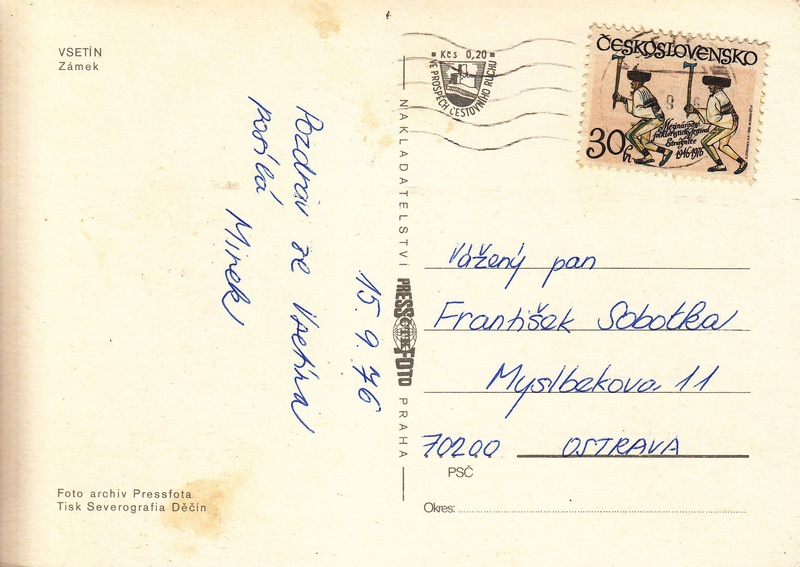 VSETÍN
Zámek
Pozdrav ze Vsetína
posílá
Mirek
15. 9. 76
Foto archiv Pressfota
Tisk Severografia Děčín
NAKLADATELSTVÍ PRESSFOTO PRAHA
Kčs 0,20
VE PROSPĚCH CESTOVNÍHO RUCHU
ČESKOSLOVENSKO
30h
Mezinárodní
folkloristický festival
Strážnice
1946-1976
Vážený pan
František Sobotka
Myslbekova 11
70200 OSTRAVA
PSČ
Okres: